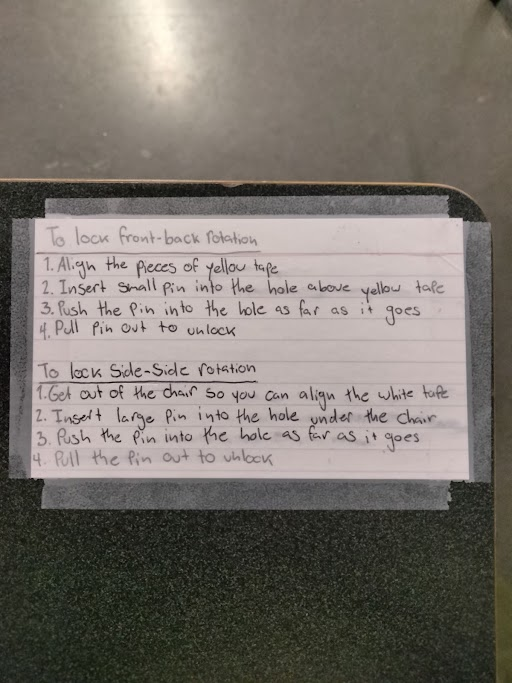 To lock front-back rotation
1. Align the pieces of yellow tape
2. Insert small pin into the hole above yellow tape
3. Push the pin into the hole as far as it goes
4. Pull pin out to unlock
To lock Side-Side rotation
1. Get out of the chair so you can align the white tape
2. Insert large pin into the hole under the chair
3. Push the pin into the hole as far as it goes
4. Pull the pin out to unlock